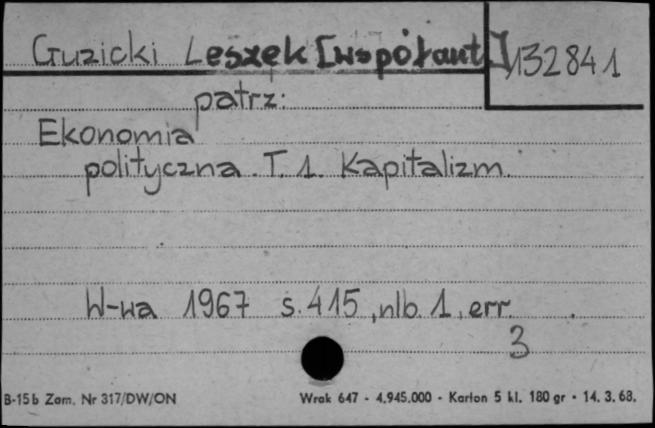 Guzicki Leszek [współaut.] 132841
patrz:
Ekonomia
polityczna. T. 1. Kapitalizm.
W-wa 1967 s. 415, nlb. 1, err.
3
B-15b Zam. Nr 317/DW/ON Wrak 647 - 4.945.000 - Karton 5 kl. 180 gr - 14. 3. 68.